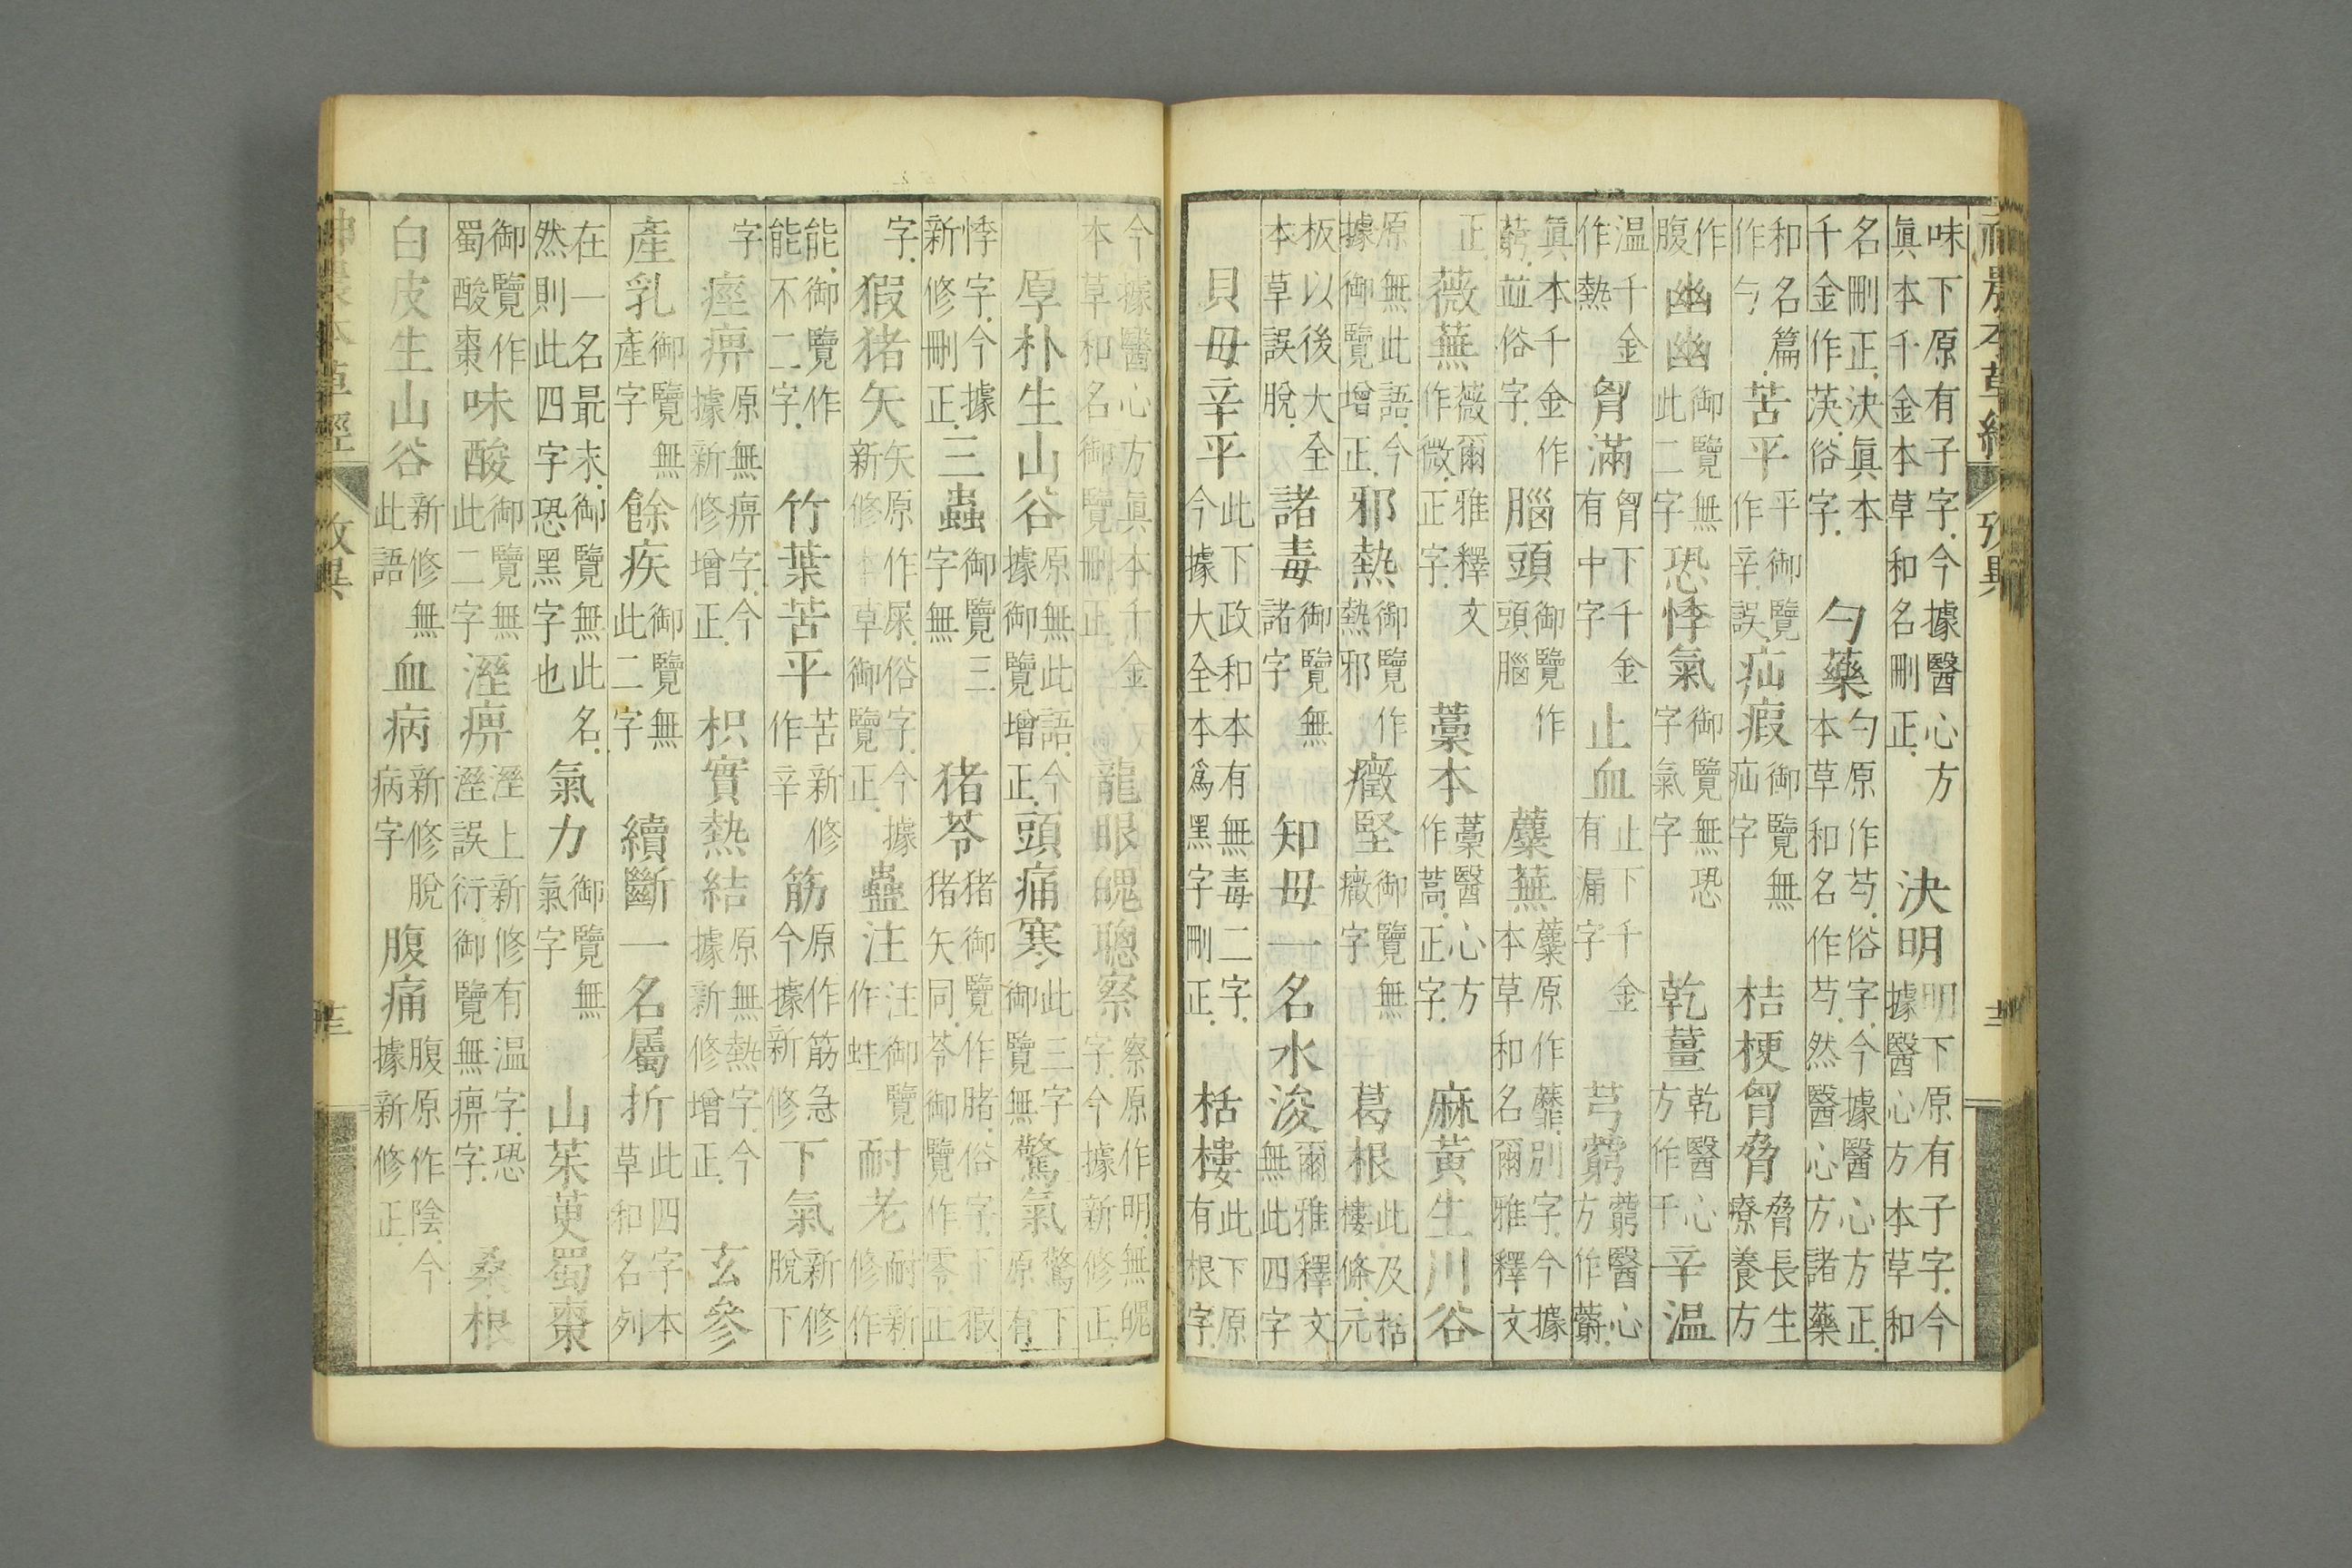 神農本草經 攷異 十二
味下原有子字.今據醫心方眞本千金本草和名刪正. 決明 明下原有子字.今據醫心方本草和
名刪正.決眞本千金作䓈.俗字. 勺藥 勺原作芍.俗字.今據醫心方正.本草和名作芍.然醫心方諸藥
和名篇作勺 苦平 平御覽作辛誤 疝瘕 御覽無疝字 桔梗胷脅 脅長生療養方
作腹 幽幽 御覽無此二字 恐悸氣 御覽無恐字氣字 乾薑 乾醫心方作干 辛温
温千金作熱 胷滿 胷下千金有中字 止血 止下千金有漏字 芎藭 藭醫心方作
眞本千金作藭.並俗字. 腦頭 御覽作頭腦 蘪蕪 蘪原作蘼.別字.今據本草和名爾雅釋文
正. 薇蕪 薇爾雅釋文作微.正字. 藁本 藁醫心方作蒿.正字. 麻黃生川谷
原無此語.今據御覽增正. 邪熱 御覽作熱邪 癥堅 御覽無癥字 葛根 此及栝樓條.元
板以後大全本草誤脫. 諸毒 御覽無諸字 知母一名水浚 爾雅釋文無此四字
貝母辛平 此下政和本有無毒二字.今據大全本爲黑字刪正. 栝樓 此下原有根字.
今據醫心方眞本千金本草和名御覽刪正. 龍眼魄聰察 察原作明.無魄字.今據新修正.
厚朴生山谷 原無此語.今據御覽增正. 頭痛寒 此三字御覽無 驚氣 驚下原有
悸字.今據新修刪正. 三蟲 御覽三字無 猪苓 猪御覽作䐗.俗字.下猳猪矢同.苓御覽作零.正
字. 猳猪矢 矢原作屎.俗字.今據新修本草御覽正. 蠱注 注御覽作蛀 耐老 耐新修作
能.御覽作能不二字. 竹葉苦平 苦新修作辛 筋 原作筋急今據新修 下氣 新修脫下
字 痙痹 原無痹字.今據新修增正. 枳實熱結 原無熱字.今據新修增正. 玄參
產乳 御覽無產字 餘疾 御覽無此二字 續斷一名屬折 此四字本草和名列
在一名最末.御覽無此名.然則此四字恐黑字也 氣力 御覽無氣字 山茱萸蜀棗
御覽作蜀酸棗 味酸 御覽無此二字 溼痹 溼上新修有温字.恐溼誤衍御覽無痹字. 桑根
白皮生山谷 新修無此語 血病 新修脫病字 腹痛 腹原作陰.今據新修正.
神農本草經 攷異